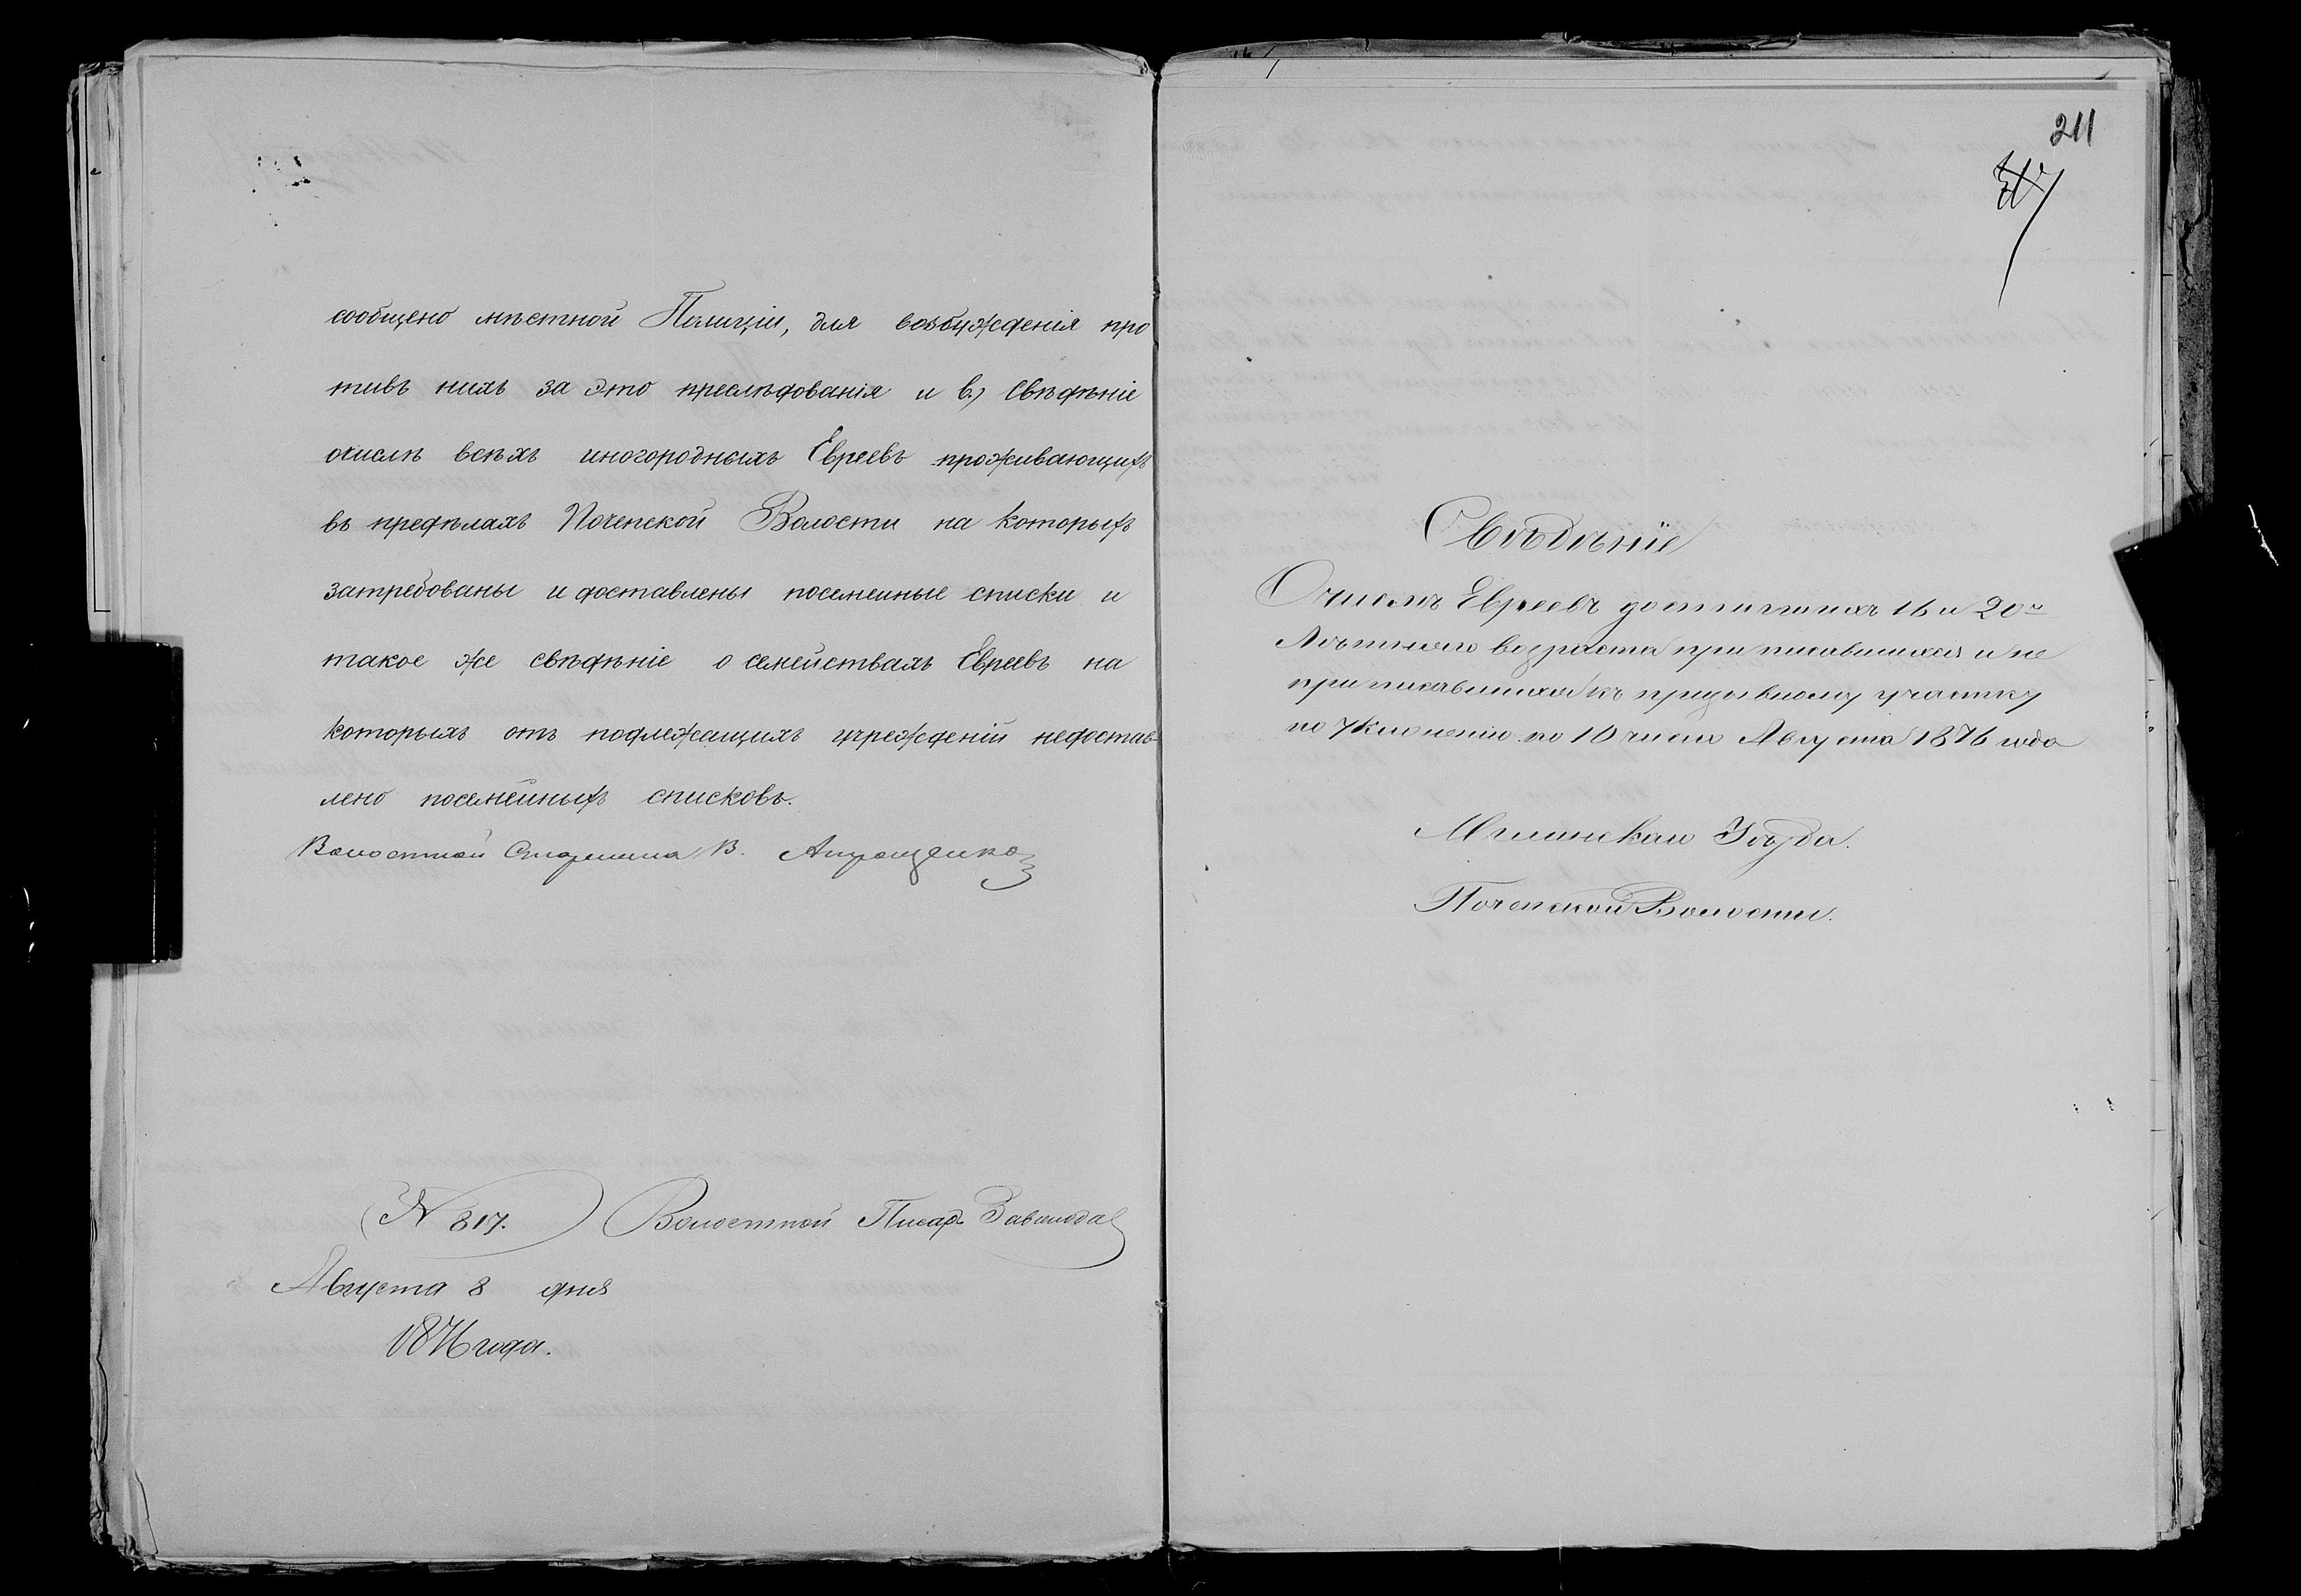 сообщено мѣстной Полиціи, для возбужденія про
тивъ нихъ за это преслѣдованія и в.) Свѣдѣніе
очислѣ всѣхъ иногородныхъ Евреевъ проживающихъ
въ предѣлахъ Почепской Волости на которыхъ
затребованы и доставлены посемейные списки и
такое же свѣдѣніе о семействахъ Евреевъ на
которыхъ отъ подлежащихъ учрежденій недостав-
лено посемейныхъ списковъ.
Волостной Старшина В. Антрощенко
N 817. Волостной Писарь
Августа 8 дня
1876 года.
211
Свѣдѣніе
Очислѣ Евреевъ достигшихъ 16 и 20и
Лѣтняго возраста приписавшихся и не
приписавшихся къ призывному участку
по 10 число Августа 1876 года
Мглинскаго Уѣзда.
Почепской Волости.